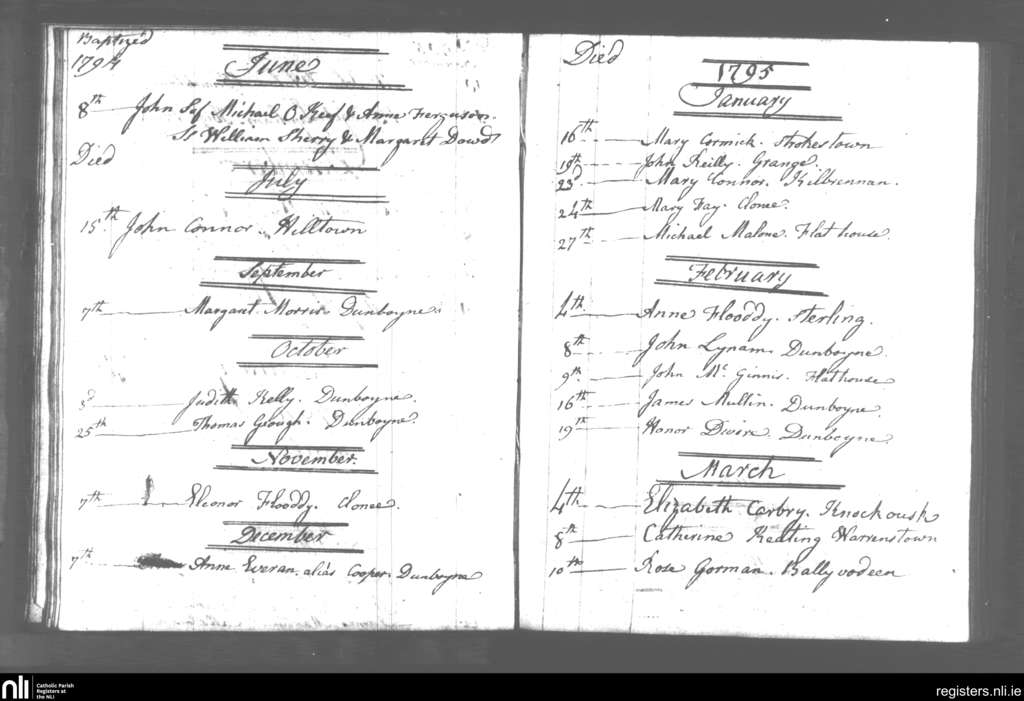 Baptized
1794
June
8th John S of Michael O Keef & Anne Ferguson.
Ss William Sherry & Margaret Dowd
Died
July
15th John Connor. Hilltown
September
7th Margaret Morris Dunboyne.
October
3d Judith Kelly. Dunboyne.
25th Thomas Geough. Dunboyne.
November.
7th Eleonor Flooddy. Clonee.
December
7th Anne Everan. alias Cooper. Dunboyne
Died
1795
January
16th Mary Cormick. Stokestown
19th John Reilly. Grange.
23d Mary Connor. Kilbrennan.
24th Mary Fay. Clonee.
27th Michael Malone. Flathouse.
February
4th Anne Flooddy. Sterling.
8th John Lynam. Dunboyne.
9th John Mc Ginnis. Flathouse
16th James Mullin. Dunboyne.
19th Honor Devire. Dunboyne.
March
4th Elizabeth Corbry. Knockousk
8th Catherine Keating Warrenstown
10th Rose Gorman. Ballyvodeen
nli Catholic Parish
Registers at
the NLI
registers.nli.ie